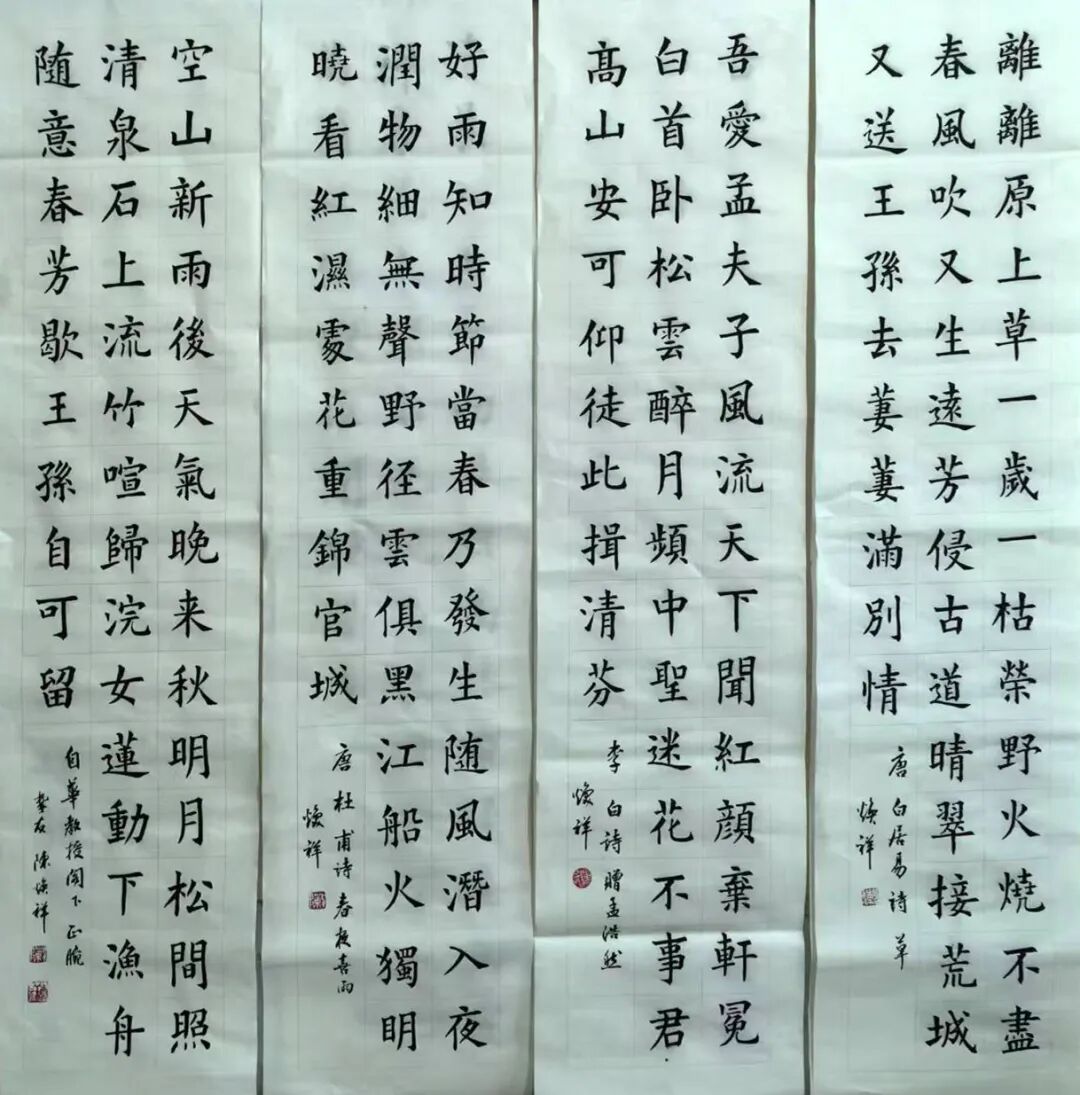 離離原上草一歲一枯榮野火燒不盡
春風吹又生遠芳侵古道晴翠接荒城
又送王孫去萋萋滿別情
唐 白居易诗 草
煥祥
吾愛孟夫子風流天下聞紅顔棄軒冕
白首卧松雲醉月頻中聖迷花不事君
髙山安可仰徒此揖清芬
李白诗 贈孟浩然
煥祥
好雨知時節當春乃發生随風潛入夜
潤物細無聲野径雲俱黑江船火獨明
曉看紅濕處花重錦官城
唐 杜甫诗 春夜喜雨
煥祥
空山新雨後天氣晚来秋明月松間照
清泉石上流竹喧歸浣女蓮動下漁舟
随意春芳歇王孫自可留
自華教授閣下正腕
摯友 陳煥祥